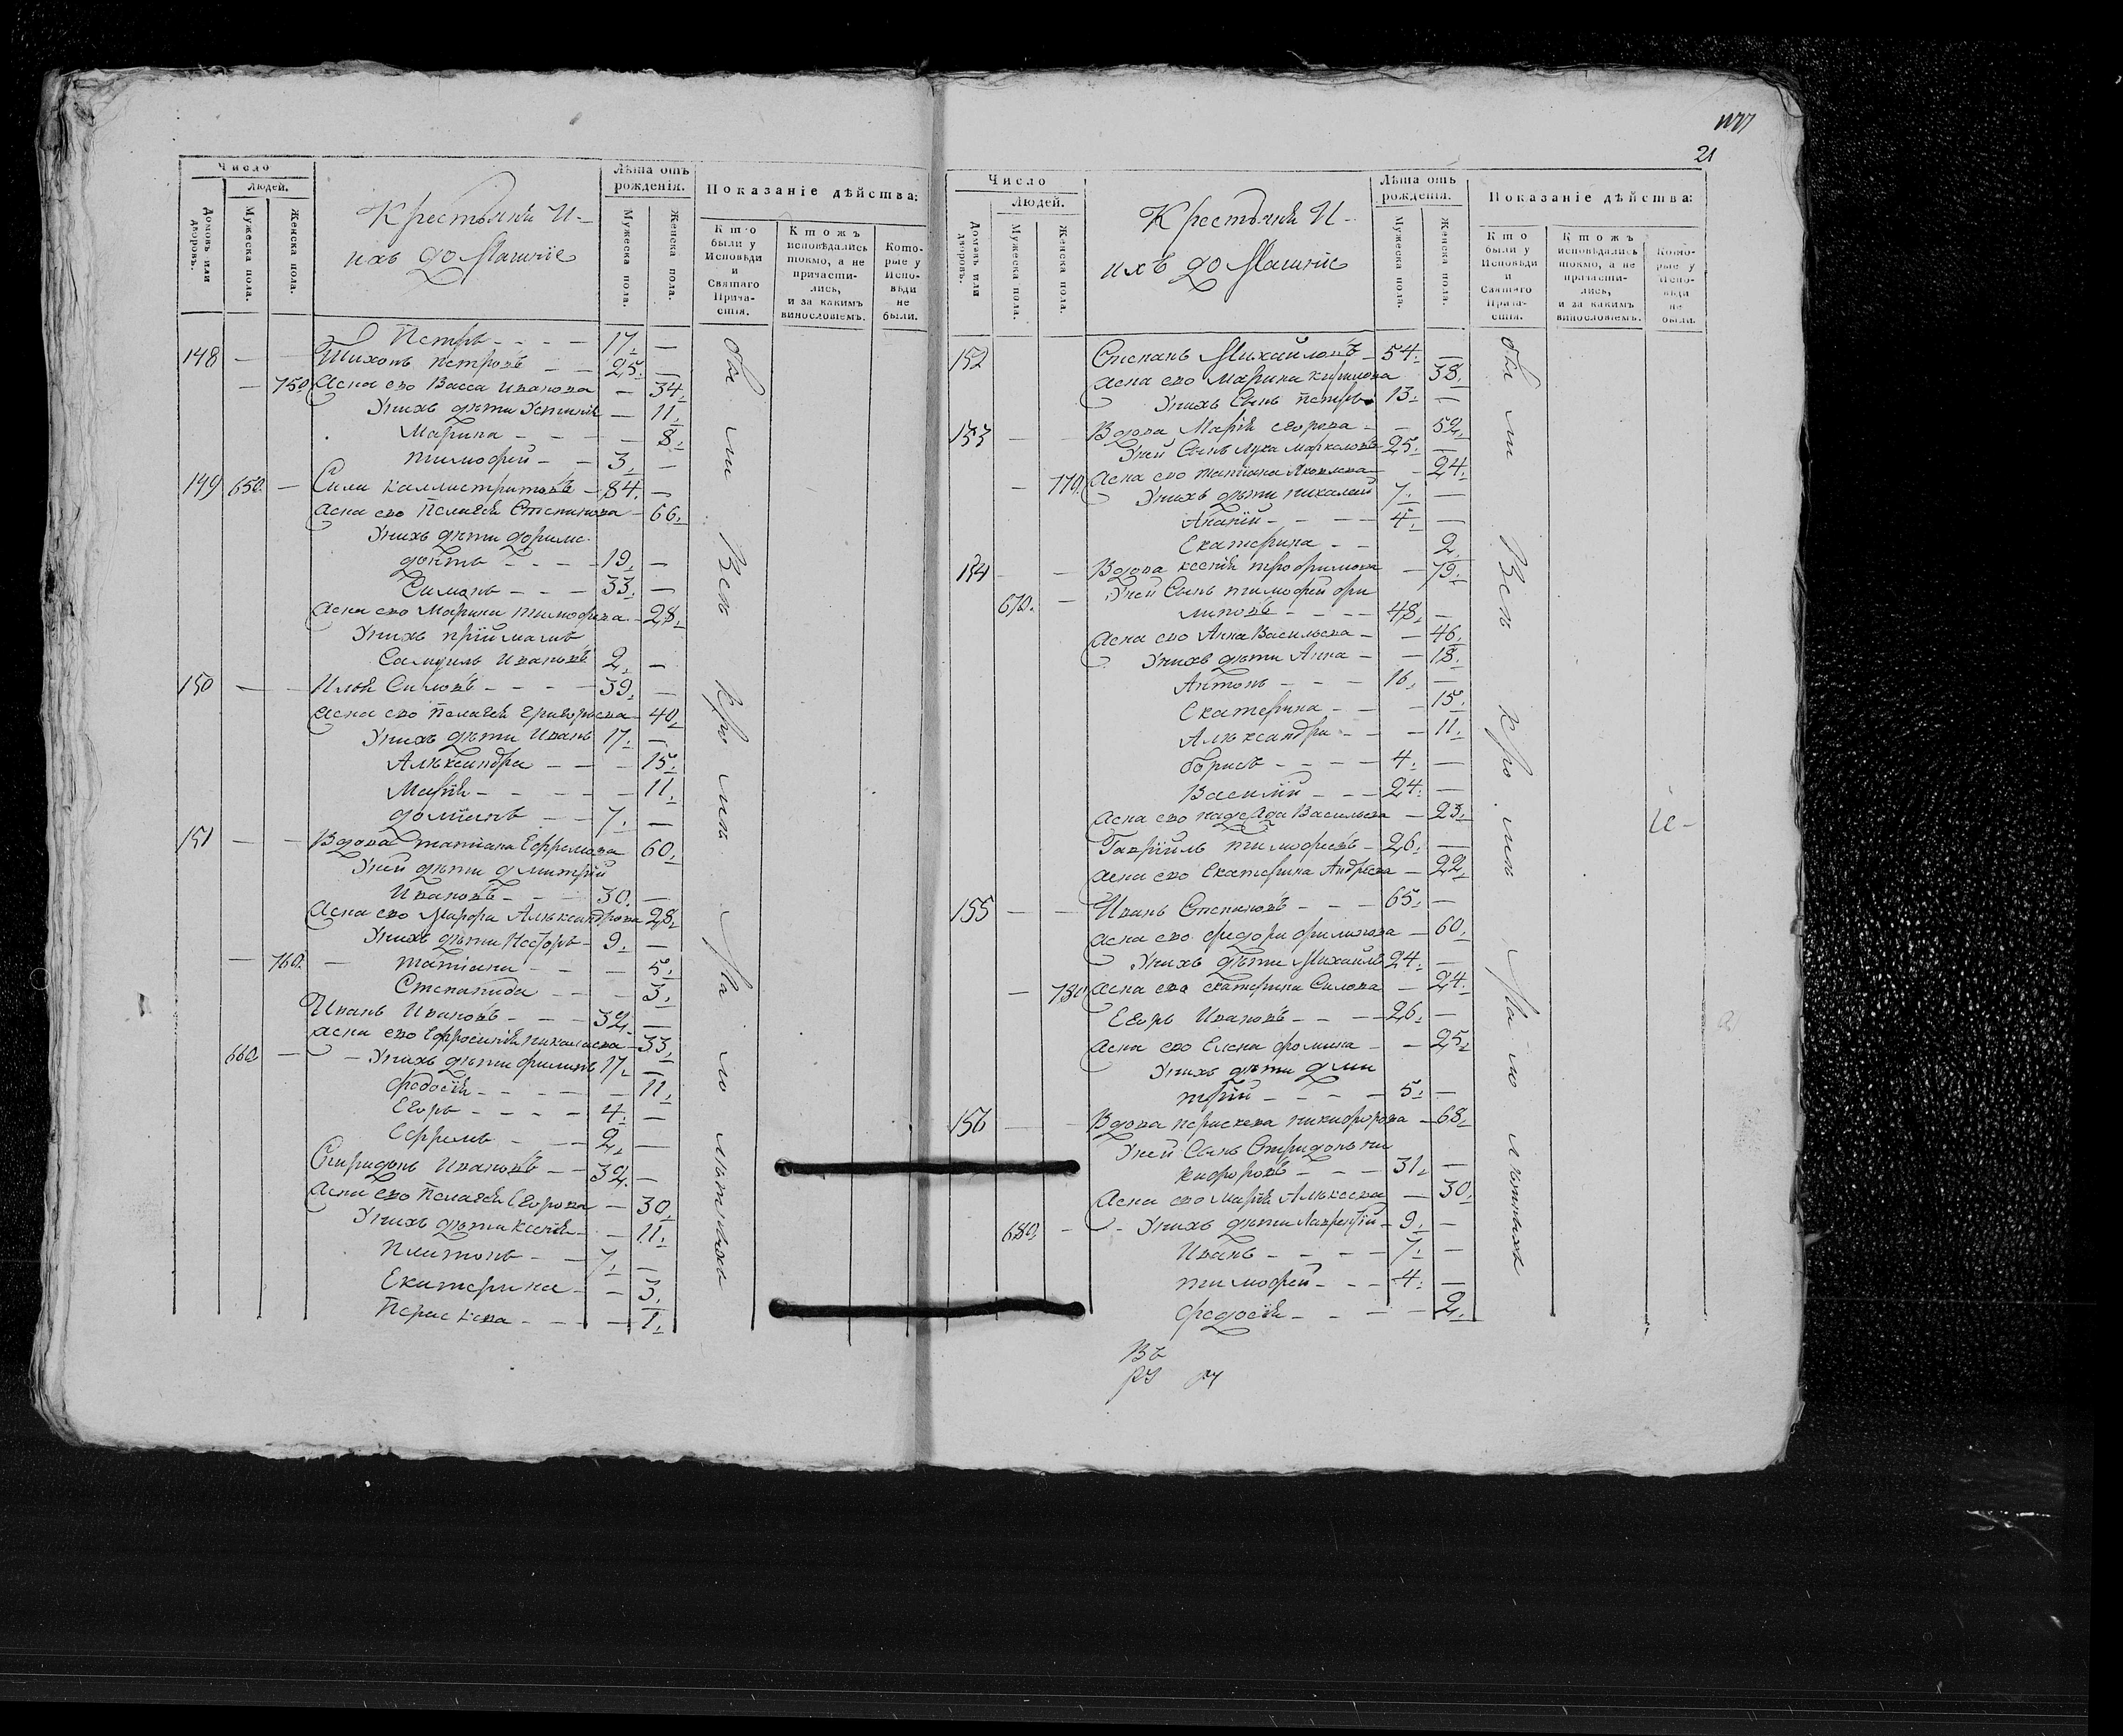 Число
Людей.
Домовъ или дворовъ.
Мужеска пола.
Женска пола.
Крестьянѣ И-
ихъ домашніе
Лѣта отъ рожденія.
Мужеска пола.
Женска пола.
Показаніе дѣйства:
Кто были у Исповѣди и Святаго Прича-стія.
Ктожъ исповѣдались токмо, а не причасти-лись, и за какимъ винословіемъ.
Кото-рые у Испо-вѣди не были.
Петръ - - - - 17. —
148 — — Тихонъ Петровъ - - 25. —
— 750. Жена его Васса Иванова — 34.
У нихъ дѣти Устинія — 11.
Марина - - - — 8.
Тимофей - - 3. —
149 650. — Сила Каллистратовъ - 84. —
Жена его Пелагея Степанова - 66.
У нихъ дѣти
19. —
Симонъ - - - 33. —
Жена его Марина Тимофеева - 28.
У нихъ пріймашъ
Самуилъ Ивановъ 2. —
150 — — Илья Силовъ - - - - 39. —
Жена его Пелагея Григорьева - 40.
У нихъ дѣти Иванъ 17. —
Александра - - - 15.
Марія - - - - - 11.
Доміанъ - - 7. —
151 — — Вдова Татіана Ефремова 60.
У ней дѣти Дмитрій
Ивановъ - - - 30. —
Жена его Марфа Александрова 28.
У нихъ дѣти Несторъ - 9. —
— 760. — Татіана - - — 5.
Степанида - - - 3.
Иванъ Ивановъ - - - 32. —
Жена его Ефросинія Николаева - 33.
660. — - У нихъ дѣти Филипъ 17. —
Федосія - - - - - 11.
Егоръ - - - - 4. —
Ефремъ - - - 2. —
Спиридонъ Ивановъ - - 32. —
Жена его Пелагея Егорова — 30.
У нихъ дѣти Ксенія - - 11.
Платонъ - - 7. —
Екатерина - - 3.
Пераскева - - - - 1.
были Всѣ кромѣ малолѣтныхъ
21
Число
Людей.
Домовъ или дворовъ.
Мужеска пола.
Женска пола.
Крестьянѣ И-
ихъ домашніе
Лѣта отъ рожденія.
Мужеска пола.
Женска пола.
Показаніе дѣйства:
Кто были у Исповѣди и Святаго Прича-стія.
Ктожъ исповѣдались токмо, а не причасти-лись, и за какимъ винословіемъ.
Кото-рые у Испо-вѣди не были.
152 Степанъ Михайловъ - 54. —
Жена его Марина Кирилова 38.
У нихъ Сынъ Петръ 13. —
153 — — Вдова Марія Егорова - - 52.
У ней Сынъ Лука Маркеловъ 25. —
— 770. Жена его Татіана Яковлева - 24.
У нихъ дѣти Николай 7. —
Ананій - - - - 4. —
Екатерина - - 2.
154 - — Вдова Ксенія Трофимова - 79.
670. — У ней Сынъ Тимофей Фи
липовъ - - - - 48. —
Жена его Анна Васильева - - 46.
У нихъ дѣти Анна - - 18.
Антонъ - - - 16. —
Екатерина - - - 15.
Александра - - - 11.
Борисъ - - - - 4. —
Василий - - - 24. —
Жена его Надежда Васильева — 23.
Гавріилъ Тимофеевъ - 26. —
Жена его Екатерина Андреева - 22.
155 — — Иванъ Степановъ - - - 65. —
Жена его Федора Филипова - 60.
У нихъ дѣти Михаилъ 24. —
— 780 Жена его Екатерина Силова — 24.
Егоръ Ивановъ - - - 26. —
Жена его Елена Фомина - - 25.
У нихъ дѣти Дми
трій - - - - 5. —
156 — - Вдова Пераскева Никифорова - 68.
У ней Сынъ Спиридонъ Ни
кифоровъ - - - 31. —
Жена его Марія Алексеева — 30.
680. - - У нихъ дѣти Лаврентій - 9. —
Иванъ - - - - 7. —
Тимофей - - - 4. —
Федосія - - - - 2.
были Всѣ кромѣ малолѣтныхъ